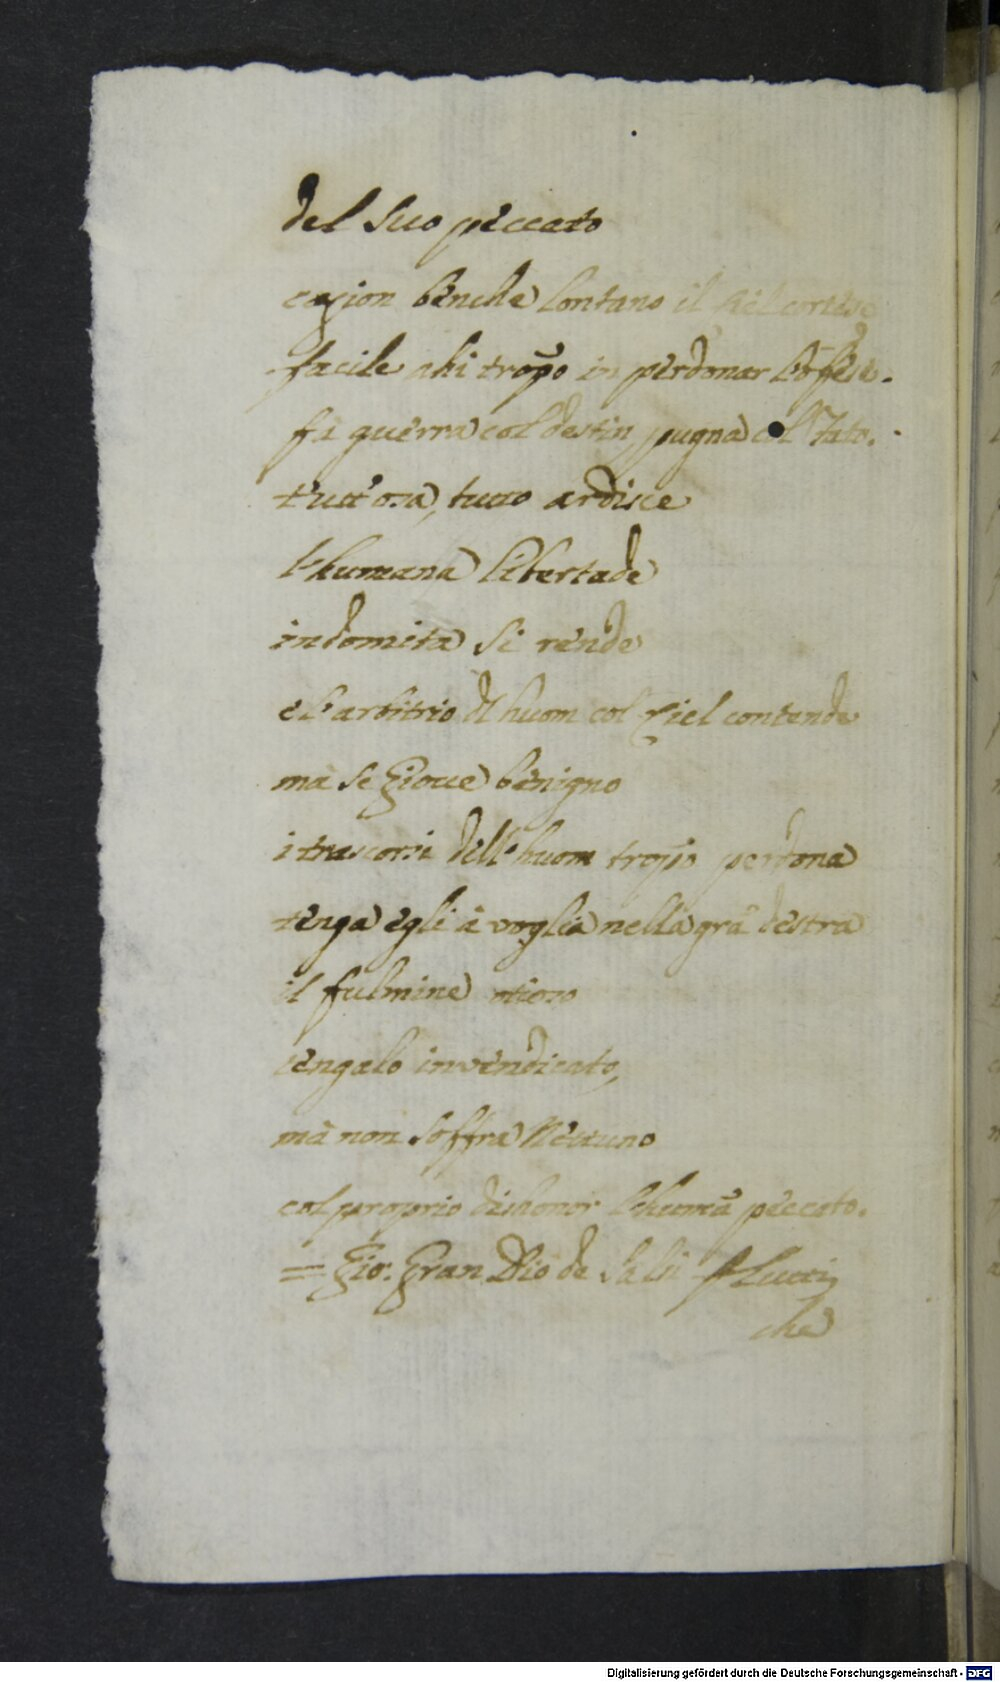 del suo peccato
cagion benche lontano il Ciel cortese
facile ahi tropo in perdonar l'offese.
fà guerra col destin, pugna col Fato.
tutt'osa, tutto ardisce
l'humana libertade
indomita si rende
e l'arbitrio d'huom col Ciel contende
mà se Gioue benigno
i trascorsi dell'huom tropo perdona
tenga egli à voglia nella grã destra
il fulmine otioso
tengalo inuendicato,
mà non soffra Nettuno
col proprio dishonor l'humã peccato.
= Gio: Gran Dio de Salsi flutti,
che
Digitalisierung gefördert durch die Deutsche Forschungsgemeinschaft - DFG